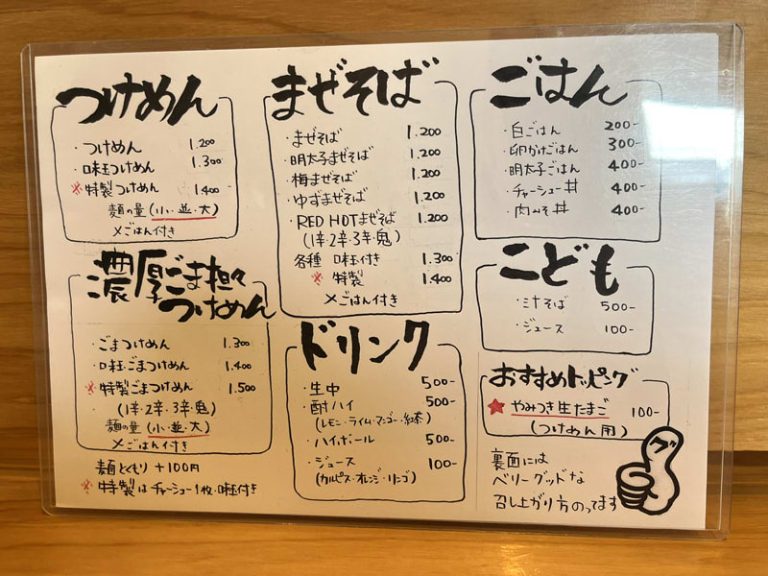 つけめん
・つけめん 1.200
・味玉つけめん 1.300
※特製つけめん 1.400
麺の量(小・並・大)
〆ごはん付き
濃厚ごま担々
つけめん
・ごまつけめん 1.300
・味玉ごまつけめん 1.400
※特製ごまつけめん 1.500
・(1辛・2辛・3辛・鬼)
麺の量(小・並・大)
〆ごはん付き
麺大もり +100円
※特製はチャーシュー1枚・味玉付き
まぜそば
・まぜそば 1.200
・明太子まぜそば 1.200
・梅まぜそば 1.200
・ゆずまぜそば 1.200
・RED HOTまぜそば 1.200
(1辛・2辛・3辛・鬼)
各種 味玉付き 1.300
※特製 1.400
〆ごはん付き
ドリンク
・生中 500-
・酎ハイ 500-
(レモン・ライム・マンゴー・紅茶)
・ハイボール 500-
・ジュース 100-
(カルピス・オレンジ・リンゴ)
ごはん
・白ごはん 200-
・卵かけごはん 300-
・明太子ごはん 400-
・チャーシュー丼 400-
・肉みそ丼 400-
こども
・ミニそば 500-
・ジュース 100-
おすすめトッピング
★やみつき生たまご 100-
(つけめん用)
裏面には
ベリーグッドな
召し上がり方のってます
グ